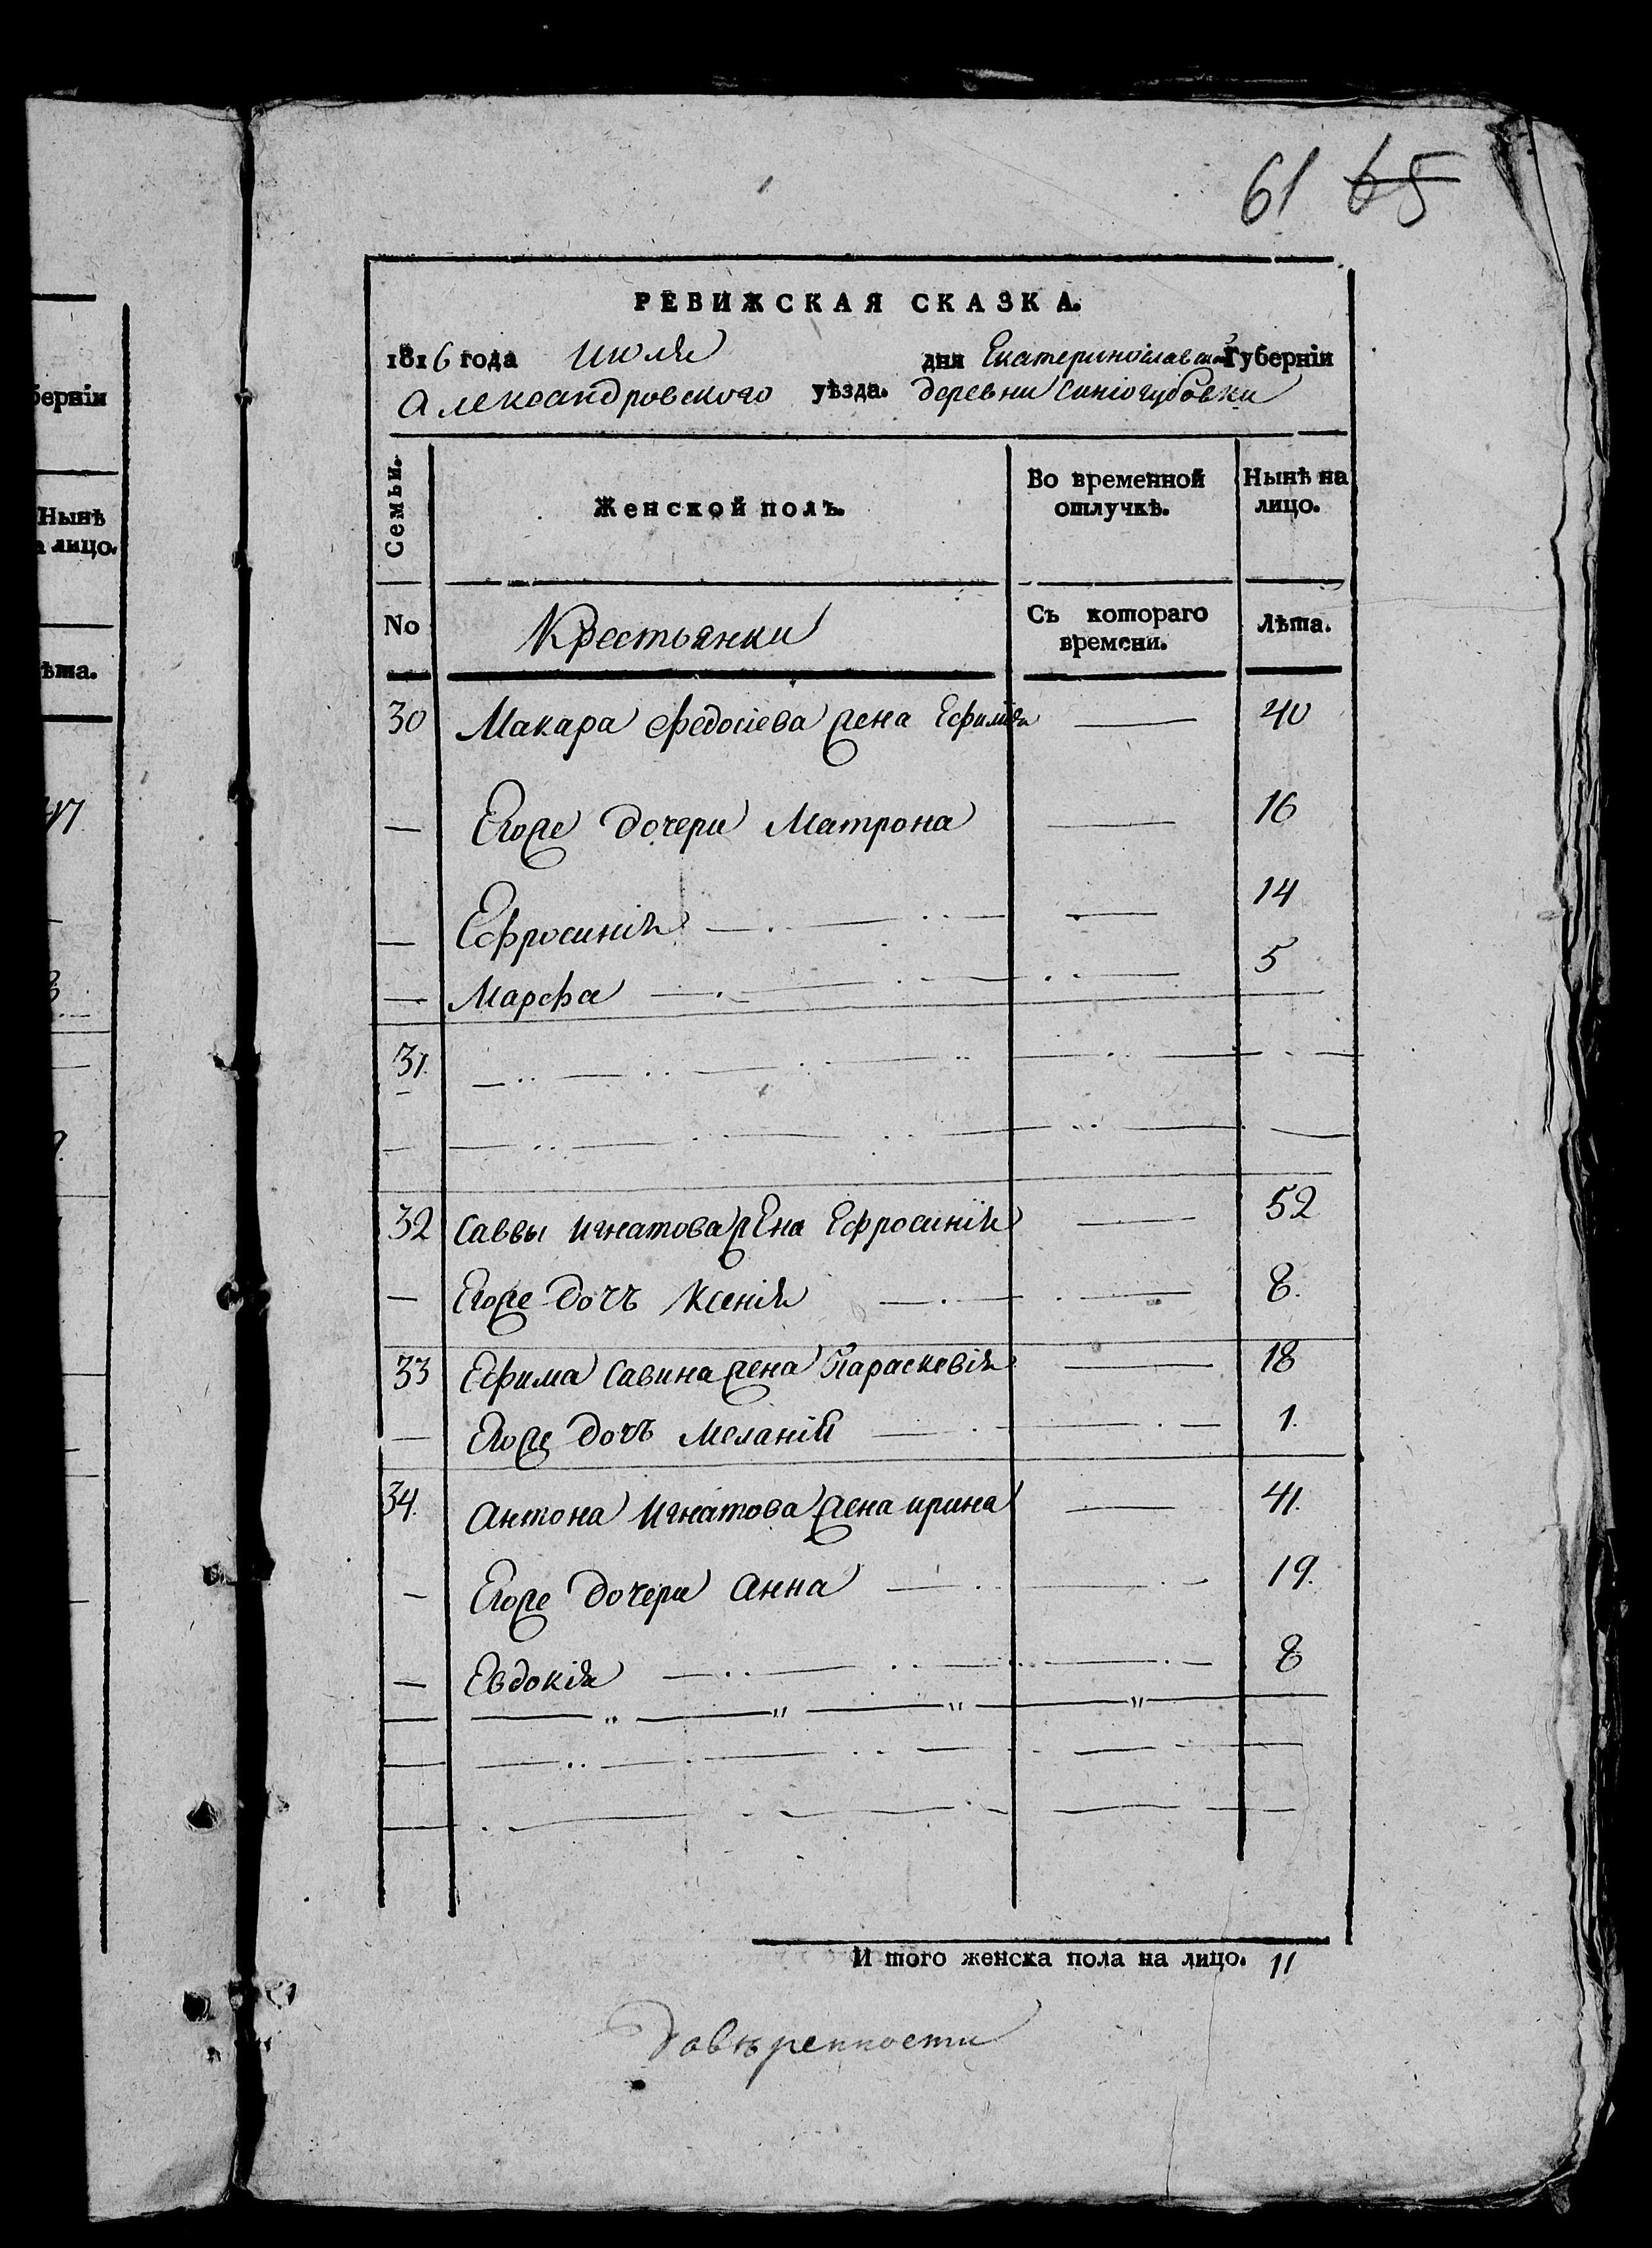 61 65
РЕВИЖСКАЯ СКАЗКА.
1816 года июля дня Екатеринославской Губерніи
Александровского уѣзда. деревни Синіогубовки
Семьи. Женской полъ. Во временной отлучкѣ. Ныиѣ на лицо.
No Крестьянки Съ котораго времени. Лѣта.
30 Макара Федосіева жена Ефимія — 40
— Егоже дочери Матрона — 16
— Ефросинія — 14
— Марфа — 5
31.
32 Саввы Игнатова жена Ефросинія — 52
— Егоже дочь Ксенія — 8.
33 Ефима Савина жена Параскевія — 18
— Егоже дочь Меланія — 1.
34. Антона Игнатова жена ирина — 41.
— Егоже дочери Анна — 19.
— Евдокія — 8
И того женска пола на лицо. 11
Довѣренности
берніи
Нынѣ
а лицо.
ѣта.
47.